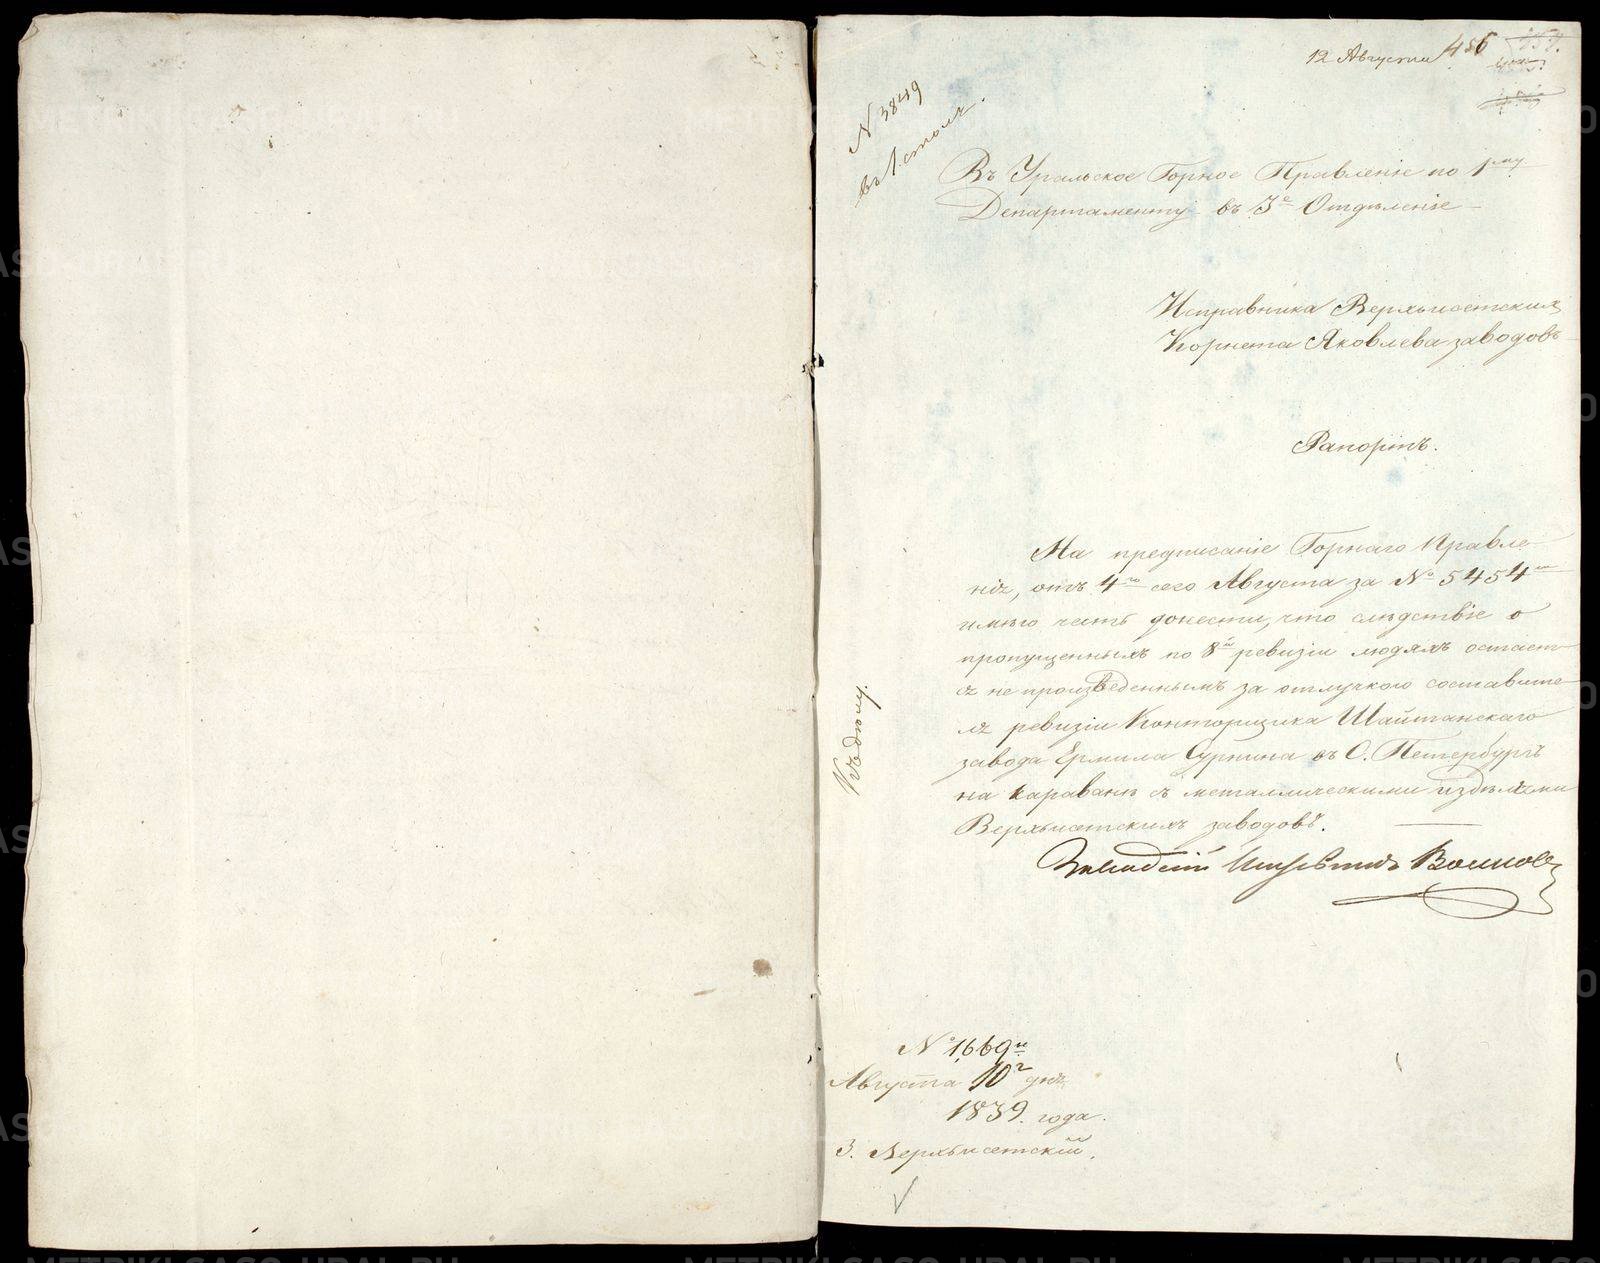 12 Августа 456
N 3849
въ 1 столъ.
Въ Уральское Горное Правленіе по 1му
Департаменту въ 3е Отдѣленіе
Исправника Верхъисетскихъ
Корнета Яковлева заводовъ
Рапортъ.
На предписаніе Горнаго Правле-
нія, отъ 4го сего Августа за № 5454м
имѣю честь донести, что слѣдствіе о
пропущенныхъ по 8й ревизіи людяхъ остает-
ся не произведеннымъ за отлучкою составите-
ля ревизіи Конторщика Шайтанскаго
завода Ермила Суркина въ С. Петербургъ
на караванѣ съ металлическими издѣліями
Верхъисетскихъ заводовъ.
Заводскій Исправникъ
Къ дѣлу.
№ 1669й
Августа 10г дня
1839. года.
З. Верхъисетскій.
METRIKI.GASO-URAL.RU